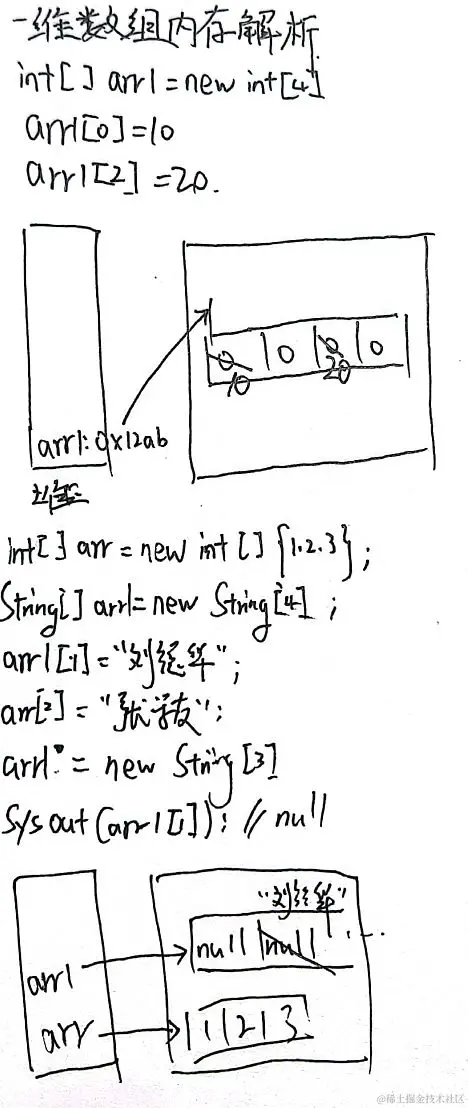 一维数组内存解析
int[] arr1 = new int[4]
arr1[0]=10
arr1[2]=20.
0 0 0 0
10 20
arr1:0x12ab
int[] arr = new int[]{1.2.3};
String[] arr1= new String[4];
arr1[1]="刘德华";
arr[2]="张学友";
arr1 = new String[3]
Sysout(arr1[1]); // null
"刘德华"
null null ...
arr1
arr 1 2 3
@稀土掘金技术社区